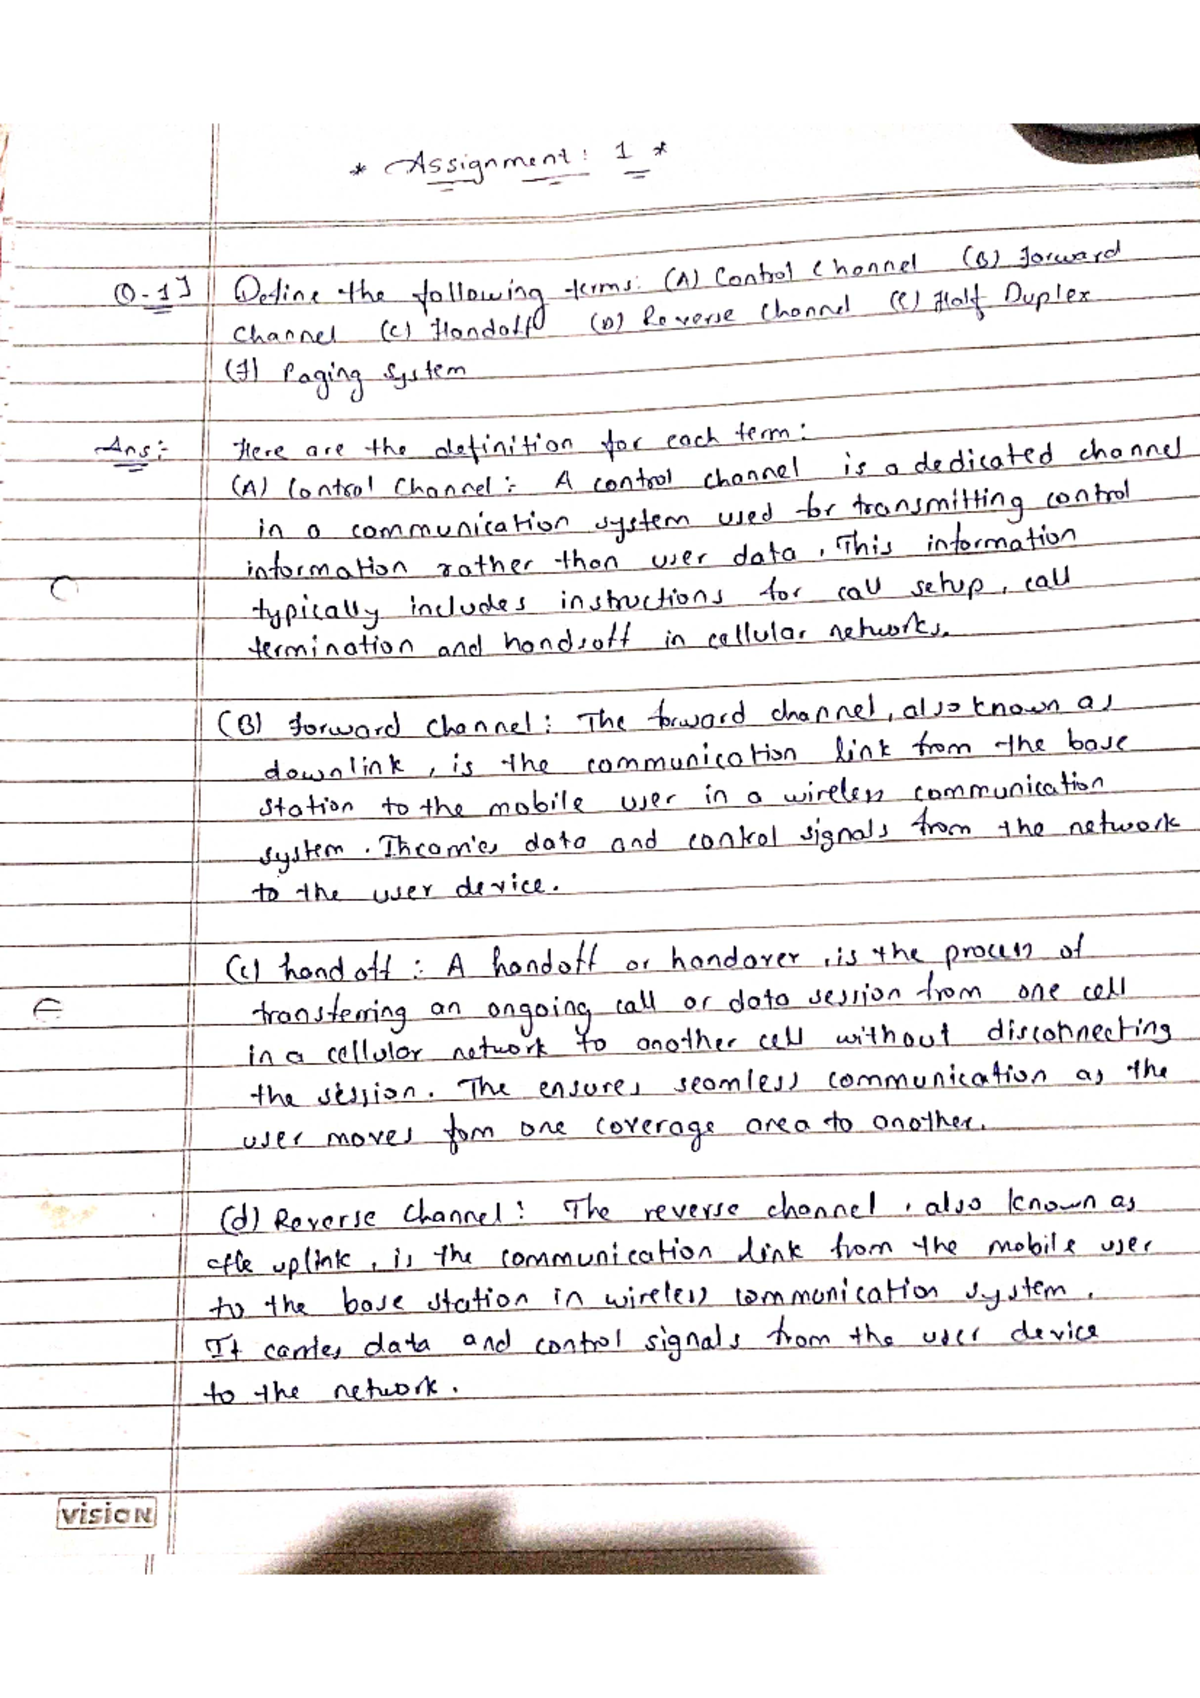 * Assignment: 1 *
Q-1] Define the following terms: (A) Control Channel (B) Forward
Channel (C) Handoff (D) Reverse Channel (E) Half Duplex
(F) Paging System
Ans:- Here are the definition for each term:
(A) Control Channel:- A control channel is a dedicated channel
in a communication system used for transmitting control
information rather than user data. This information
typically includes instructions for call setup, call
termination and handsoff in cellular networks.
(B) Forward Channel: The forward channel, also known as
downlink, is the communication link from the base
station to the mobile user in a wireless communication
system. It carries data and control signals from the network
to the user device.
(C) hand off: A handoff or handover, is the process of
transferring an ongoing call or data session from one cell
in a cellular network to another cell without disconnecting
the session. The ensures seamless communication as the
user moves fom one coverage area to another.
(d) Reverse Channel: The reverse channel, also known as
uplink, is the communication link from the mobile user
to the base station in wireless communication system.
It carries data and control signals from the user device
to the network.
VISION